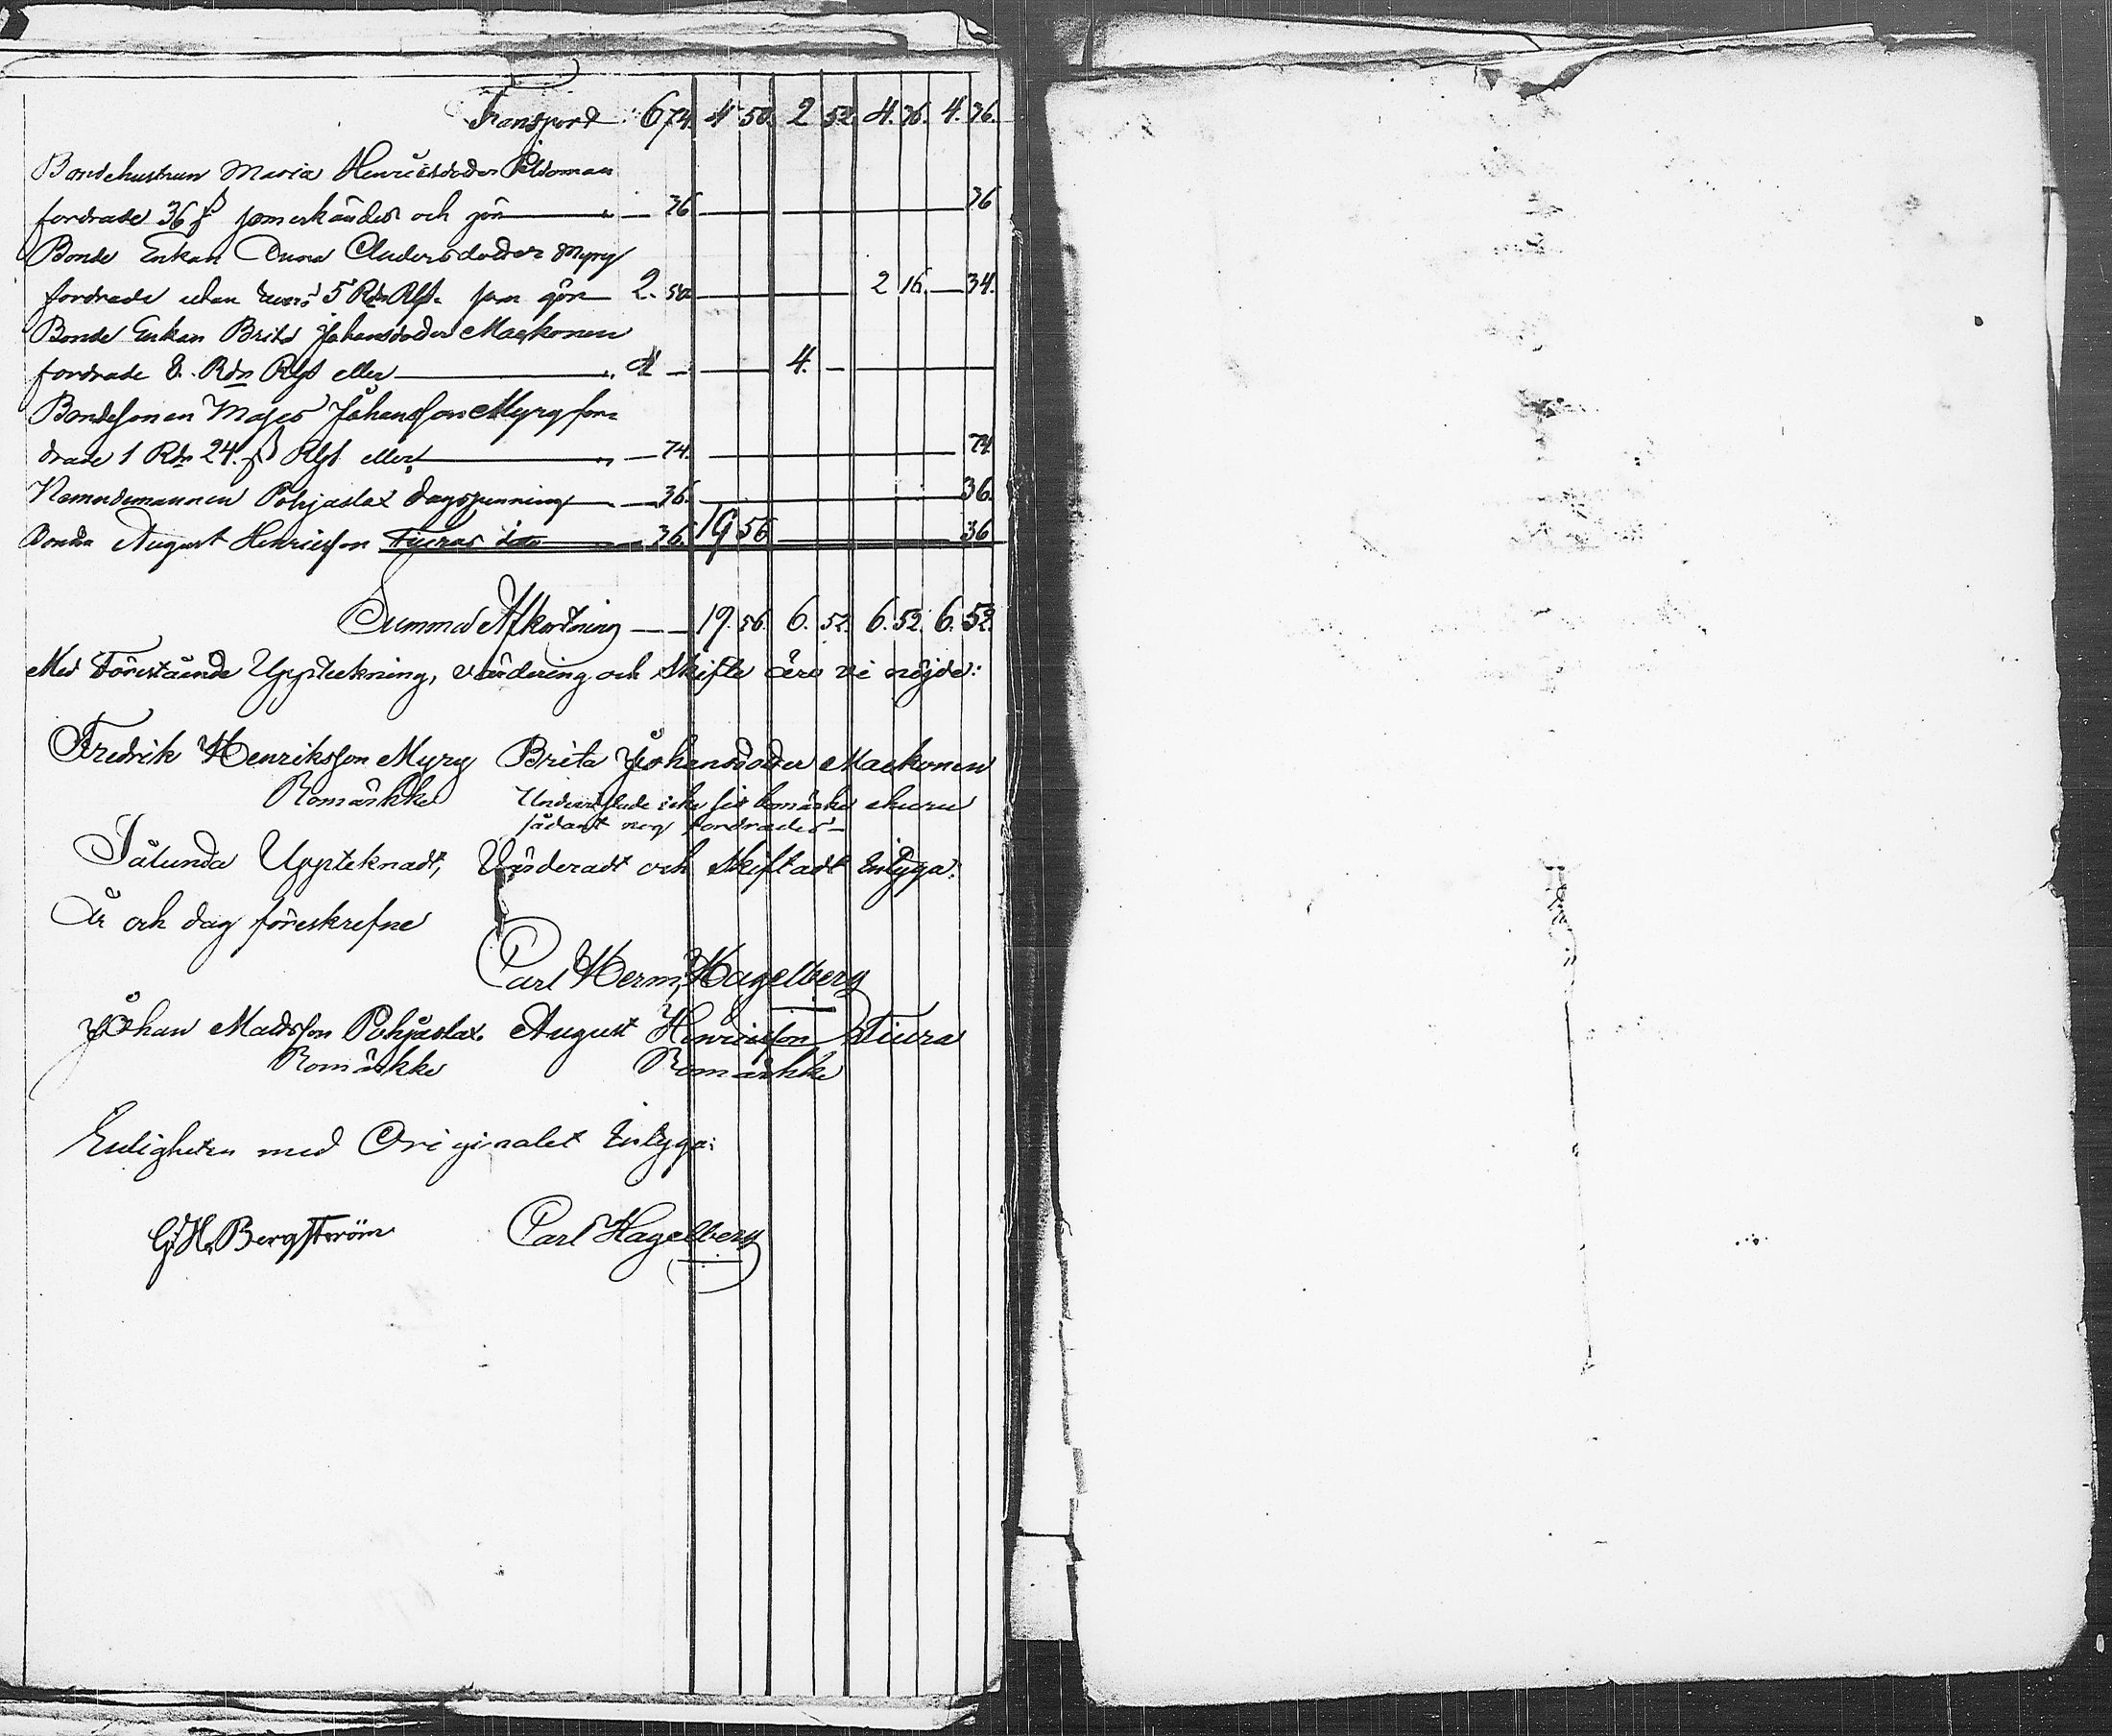 Transport 6 74. 4 50. 2 52 4. 36. 4. 36.
Bondehustrun Maria Henricsdoter
fordrade 36 ß som erkändes och gör — 36 — 36
Bonde Enkan Anna Andersdotter Myry
fordrade utan bevis 5 Rdr Rgs. som gör 2. 50 — 2 16. — 34.
Bonde Enkan Brita Johansdoter Maekonen
fordrade 8. Rdr Rgs eller — 4 — 4. —
Bondesonen Mats Johansson Myry for-
drade 1 Rdr 24. ß Rgs eller — 74. — 74
Nämndemannen Pohjaslax dagspenning — 36. — 36.
Bonden August Henricsson Tiuras dito — 36. 19 56 — 36
Summa Afkortning — 19. 56. 6. 52. 6. 52. 6. 52.
Med Förestående Uppteckning, värdering och Skifte äro vi nöjde:
Fredrik Henriksson Myry Brita Johansdoter Maekonen
Bomärkke icke sit bomärke ehuru
sådant nog fordrades —
Sålunda Uppteknadt, Värderadt och Skiftadt Intyga:
År och dag föreskrefne
Carl Herm. Hagelberg
Johan Madsson Pohjaslax. August Henricsson Tiura
Bomärkke Bomärkke
Enligheten med Originalet Intyga:
G. H. Bergström Carl Hagelberg